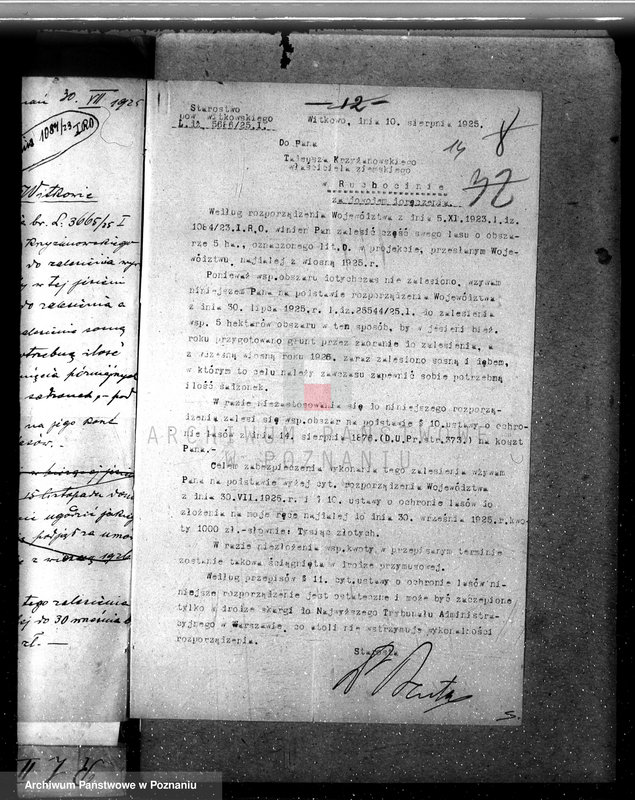 30. VII 1925
1084/23 IRO
Witkowie
br. L. 3665/25 I
Krzyżanowskiego
do zalesienia
w tej jesieni
do zalesienia a
sosną
ilość
na jego koszt
15 listopada
z wiosną 1926
tego zalesienia
do 30 września
zł. —
-12-
Starostwo
pow. witkowskiego
L.iz 5686/25.I.
Witkowo, dnia 10. sierpnia 1925.
8
14
32
Do Pana
Tadeusza Krzyżanowskiego
właściciela ziemskiego
w Ruchocinie
za dowodem doręczenia.
Według rozporządzenia Województwa z dnia 5.XI.1923.l.iz.
1084/23.I.R.O. winien Pan zalesić część swego lasu o obsza-
rze 5 ha., oznaczonego lit.D. w projekcie, przesłanym Woje-
wództwu, najdalej z wiosną 1925.r.
Ponieważ wsp.obszaru dotychczas nie zalesiono, wzywam
niniejszem Pana na podstawie rozporządzenia Województwa
z dnia 30. lipca 1925.r. l.iz.25544/25.I. do zalesienia
wsp. 5 hektarów obszaru w ten sposób, by w jesieni bież.
roku przygotowano grunt przez zaoranie do zalesienia, a
z wczesną wiosną roku 1926. zaraz zalesiono sosną i dębem,
w którym to celu należy zawczasu zapewnić sobie potrzebną
ilość sadzonek.
W razie niezastosowania się do niniejszego rozporzą-
dzenia zalesi się wsp.obszar na podstawie § 10.ustawy o ochro-
nie lasów z dnia 14. sierpnia 1876.(D.U.Pr.str.373.) na koszt
Pana.
ARCHIWUM PAŃSTWOWE
W POZNANIU
Celem zabezpieczenia wykonania tego zalesienia wzywam
Pana na podstawie wyżej cyt. rozporządzenia Województwa
z dnia 30.VII.1925.r. i § 10. ustawy o ochronie lasów do
złożenia na moje ręce najdalej do dnia 30. września 1925.r.kwo-
ty 1000 zł.-słownie: Tysiąc złotych.
W razie niezłożenia wsp.kwoty w przepisanym terminie
zostanie takowa ściągnięta w drodze przymusowej.
Według przepisów § 11. cyt.ustawy o ochronie lasów ni-
niejsze rozporządzenie jest ostateczne i może być zaczepione
tylko w drodze skargi do Najwyższego Trybunału Administra-
cyjnego w Warszawie, co atoli nie wstrzymuje wykonalności
rozporządzenia.
Starosta
S.
Archiwum Państwowe w Poznaniu